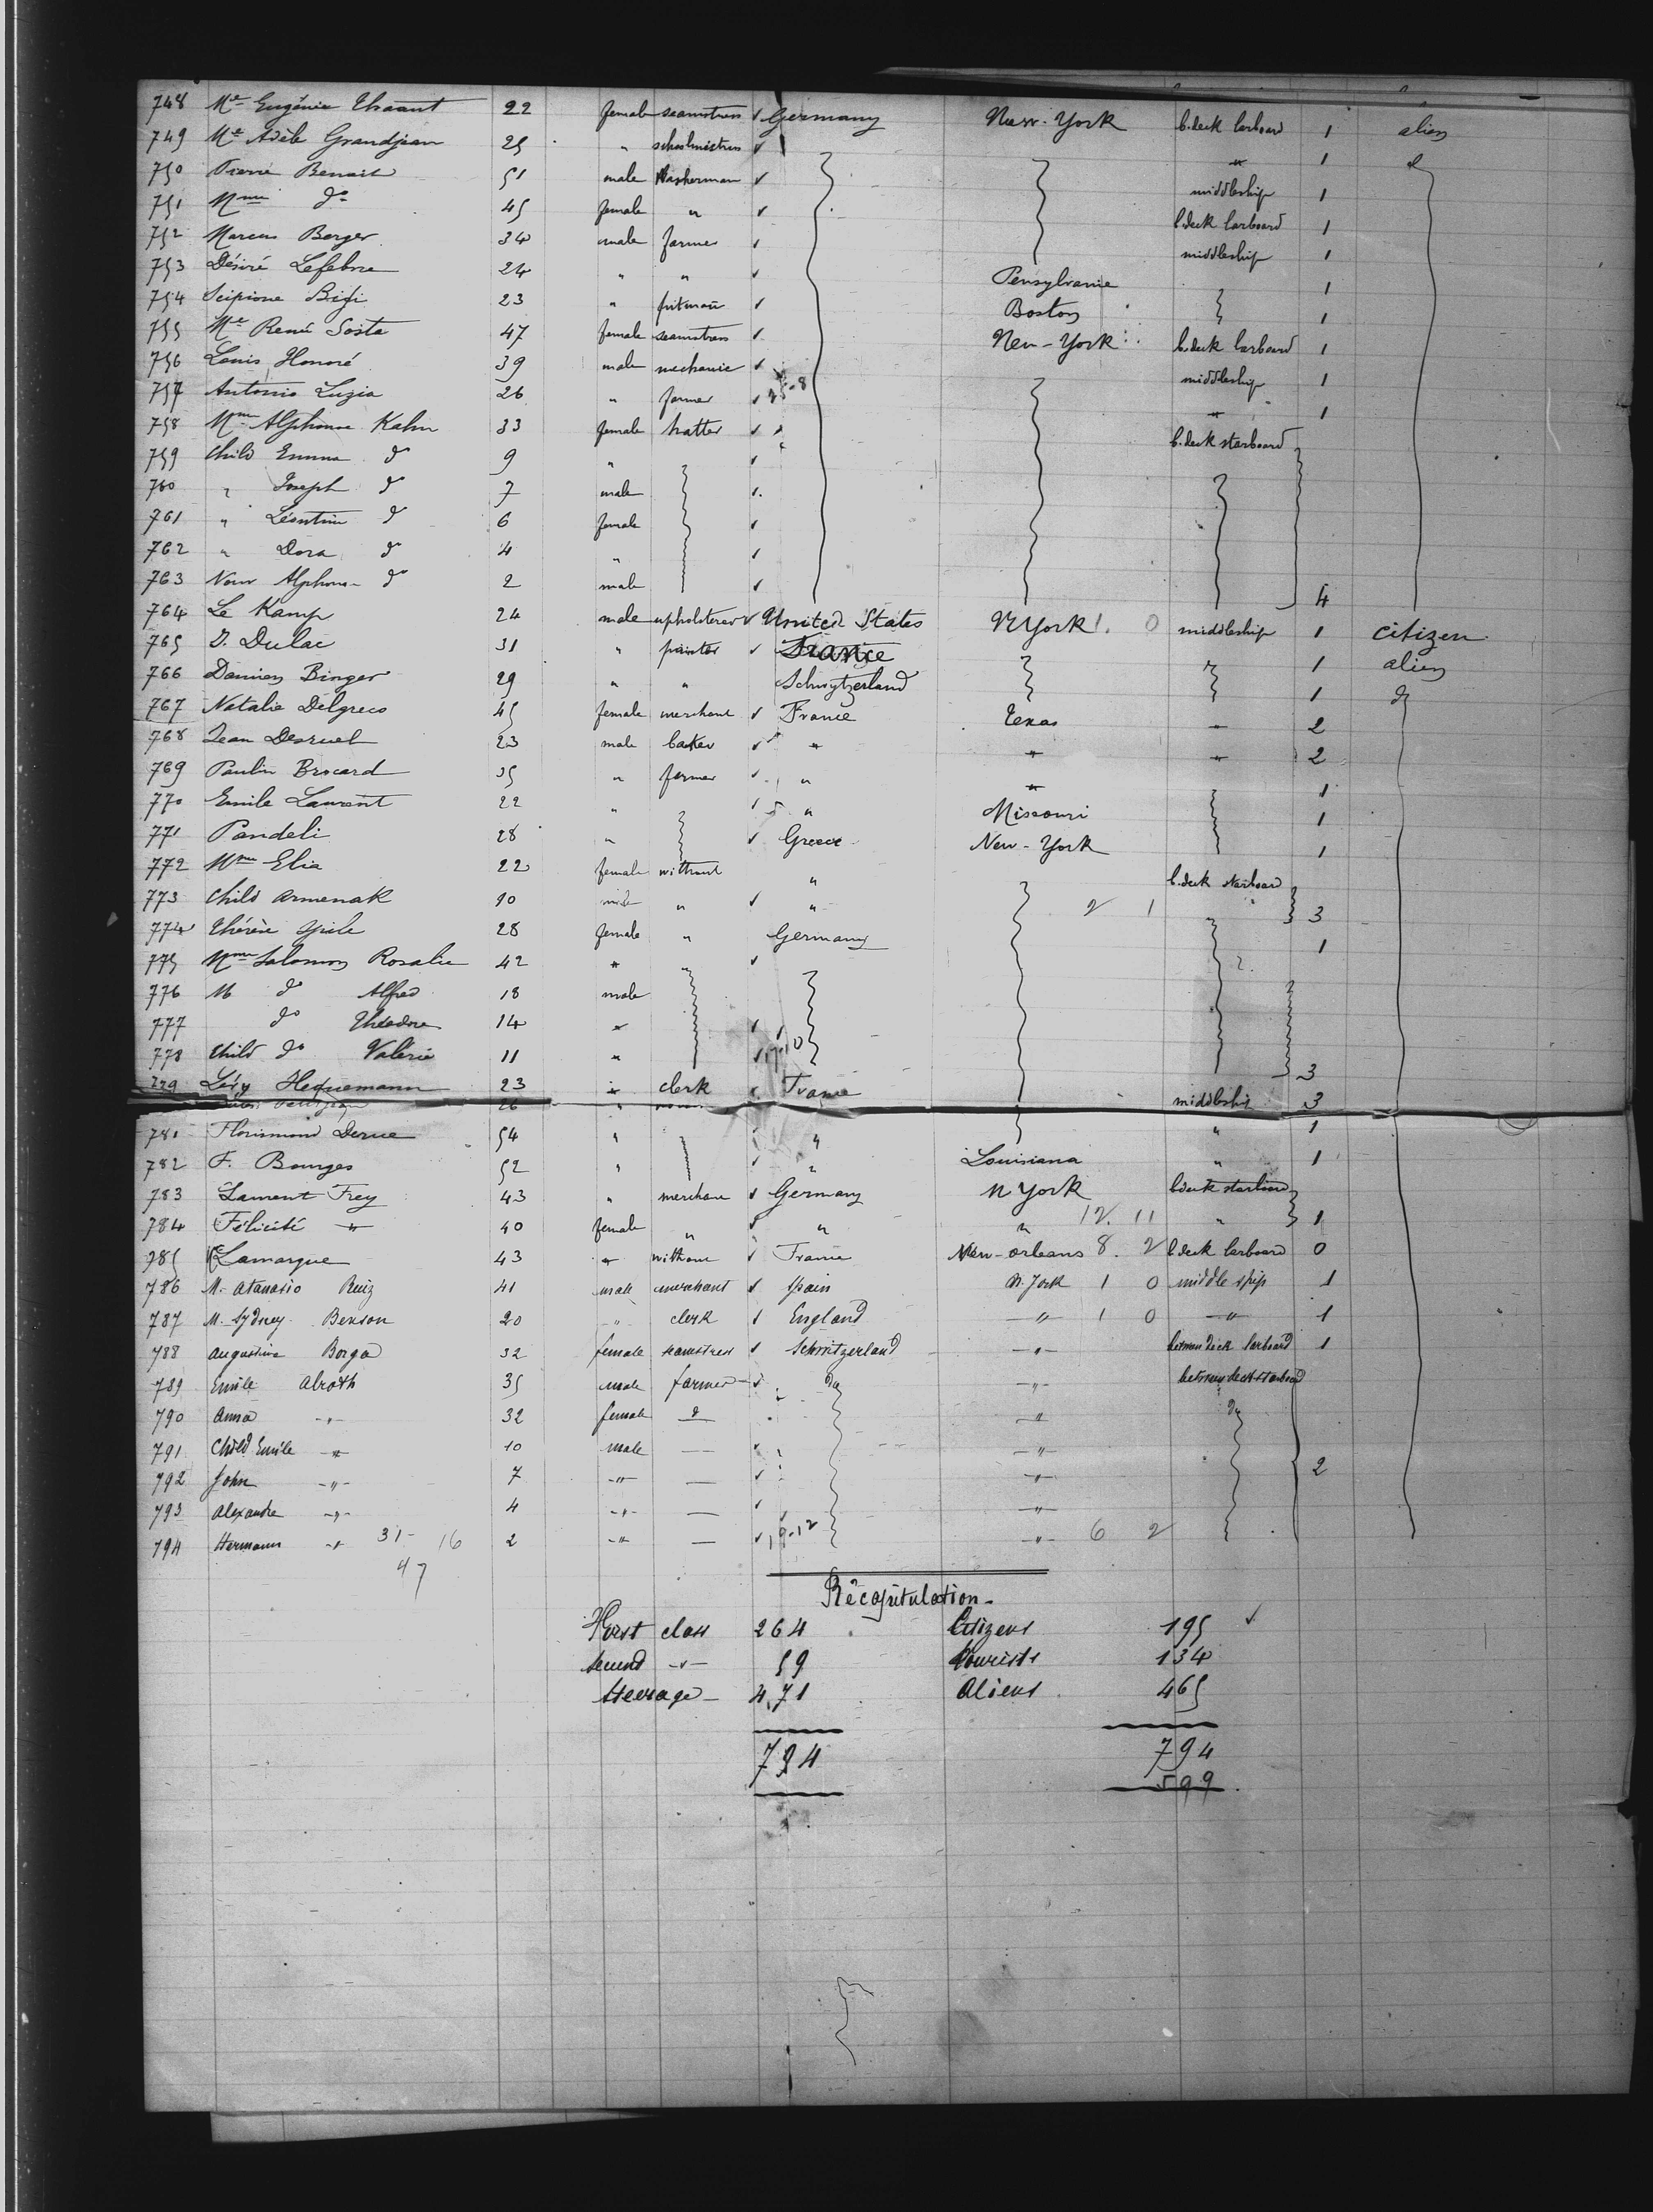 748 Me Eugénie Thraant 22 female seamstress ✓ Germany New-York b.deck larboard 1 alien
749 Me Adèle Grandjean 25 " schoolmistress ✓ " 1 d
750 Pierre Benait 51 male Washerman ✓ middleship 1
751 Mme do 45 female " ✓ b.deck larboard 1
752 Marcus Berger 34 male farmer ✓ middleship 1
753 Désiré Lefebvre 24 " " ✓ Pensylvanie 1
754 Scipione Bifi 23 " pitman ✓ Boston 1
755 Me René Sosta 47 female seamstress ✓ New-York b.deck larboard 1
756 Louis Honoré 39 male mechanic ✓ middleship 1
757 Antonio Luzia 26 " farmer ✓ " 1
758 Mme Alphonse Kahn 33 female hatter ✓ b.deck starboard
759 Child Emma do 9 " ✓
760 " Joseph do 7 male ✓
761 " Léontine do 6 female ✓
762 " Dora do 4 " ✓
763 Nour Alphonse do 2 male ✓ 4
764 Le Kamp 24 male upholsterer ✓ United States N York 1. 0 middleship 1 citizen
765 D. Dulac 31 " painter ✓ France 1 alien
766 Damien Binger 29 " " Schwytzerland 1 do
767 Natalie Delgreco 45 female merchant ✓ France Texas " 2
768 Jean Desruel 23 male baker ✓ " " " 2
769 Paulin Brocard 35 " farmer ✓ " " 1
770 Emile Laurent 22 " ✓ " Missouri 1
771 Pandeli 28 " ✓ Greece New-York 1
772 Mme Elia 22 female without " b.deck starboard
773 Child Armenak 10 male " ✓ " 2 1 " 3
774 Thérèse 28 female " Germany 1
775 Mme Salomon Rosalie 42 " ✓
776 M do Alfred 18 male
777 do Théodore 14 " ✓
778 Child do Valérie 11 " ✓ 17-10 3
779 Lévy Hequemann 23 " clerk ✓ France middleship 3
26 "
781 Florimond Derue 54 " " " 1
782 F. Bourges 52 " ✓ " Louisiana " 1
783 Lament Frey 43 " merchant ✓ Germany N York b.deck starboard
784 Félicité " 40 female " ✓ " " 12. 11 " 1
785 Me Lamarque 43 " without ✓ France New-orleans 8. 2 b.deck larboard 0
786 M. Atanasio Ruiz 41 male merchant ✓ Spain N. York 1 0 middle ship 1
787 M. Sydney Benson 20 " clerk ✓ England " 1 0 " 1
788 Augustine Borga 32 female seamstress ✓ Schwitzerland " between deck larboard 1
789 Emile Alroth 35 male farmer ✓ do " between deck starboard
790 Anna " 32 female d " do
791 Child Emile " 10 male — ✓ "
792 John " 7 " — ✓ " 2
793 Alexandre " 4 " — ✓ "
794 Hermann " 31- 16 2 " — ✓ 19-12 " 6 2
47
Récapitulation-
First class 264 Citizens 195 ✓
Second -"- 59 Tourists 134
Steerage- 471 Aliens 465
794 794
599